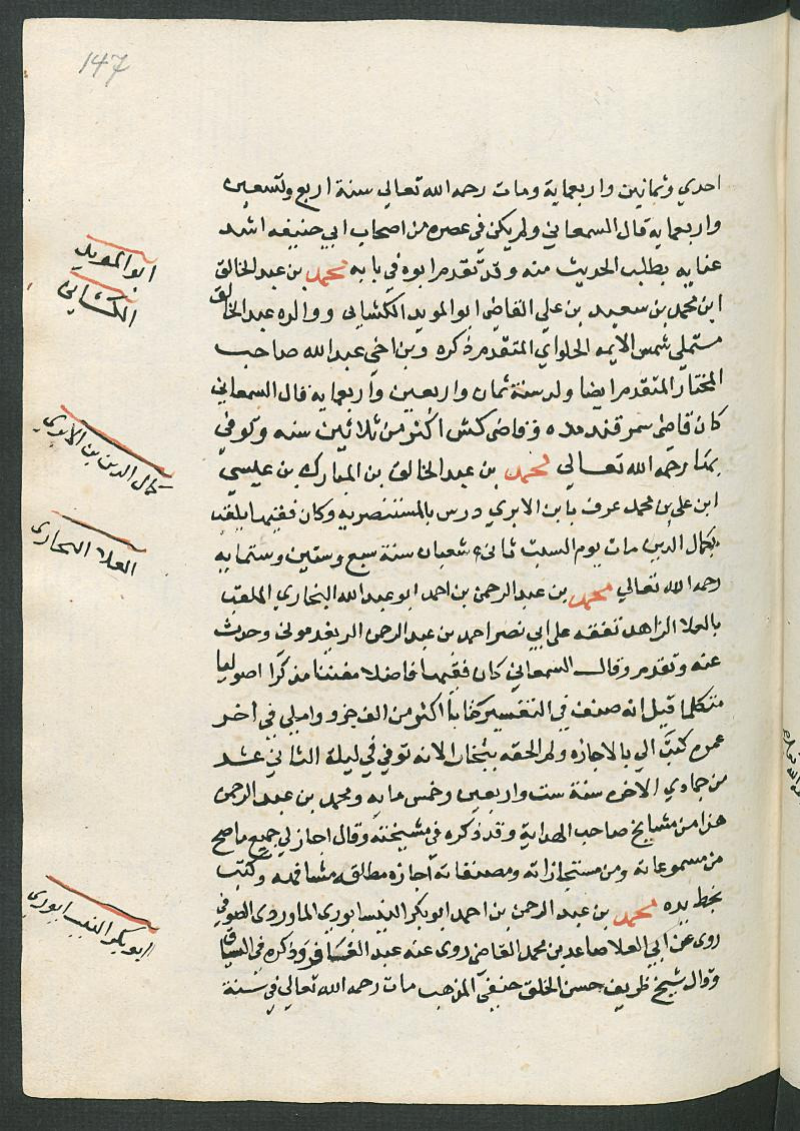 147
احدي وثمانين واربعماية ومات رحمه الله تعالي سنة اربع وتسعين
واربعمايه قال السمعاني ولم يكن في عصره من اصحاب ابي حنيفه اشد
عنايه بطلب الحديث منه وقد تقدم ابوه في بابه محمد بن عبد الخالق
ابن محمد بن سعيد بن علي القاضي ابو المويد الكشاني ووالده عبد الخالق
مستملي شمس الايمه الحلواي المتقدم ذكره وبن اخي عبد الله صاحب
المختار المتقدم ايضا ولد سنة ثمان واربعين واربعمايه قال السمعاني
كان قاضي سمرقند مده وقاضي كش اكثر من ثلاثين سنه وتوفي
بها رحمه الله تعالي محمد بن عبد الخالق بن المبارك بن عيسي
ابن علي بن محمد عرف بابن الابري درس بالمستنصريه وكان فقيها يلقب
بكمال الدين مات يوم السبت ثاني شعبان سنة سبع وستين وستمايه
رحمه الله تعالي محمد بن عبد الرحمن بن احمد ابو عبد الله البخاري الملقب
بالعلا الزاهد تفقه علي ابي نصر احمد بن عبد الرحمن الريغدموني وحدث
عنه وتقدم وقال السمعاني كان فقيها فاضلا مفننا مذكرا اصوليا
متكلما قيل انه صنف في التفسير كتابا اكثر من الف جزو واملي في اخر
عمره كتب الي بالاجازه ولم الحقه ببخار الانه توفي في ليلة الثاني عشر
من جمادي الاخره سنة ست واربعين وخمس مايه ومحمد بن عبد الرحمن
هذا من مشايخ صاحب الهدايه وقد ذكره في مشيخته وقال اجاز لي جميع ما صح
من مسموعاته ومن مستجازاته ومصنفاته اجازه مطلقه مشافهه وكتب
بخط يده محمد بن عبد الرحمن بن احمد ابو بكر النيسابوري الماوردي الصوفي
روي عن ابي العلا صاعد بن محمد القاضي روي عنه عبد الغافر وذكره في السياق
وقال شيخ ظريف حسن الخلق حنفي المذهب مات رحمه الله تعالي في سنة
ابو المويد
الكشاني
كمال الدين بن الابري
العلا البخاري
ابو بكر النيسابوري